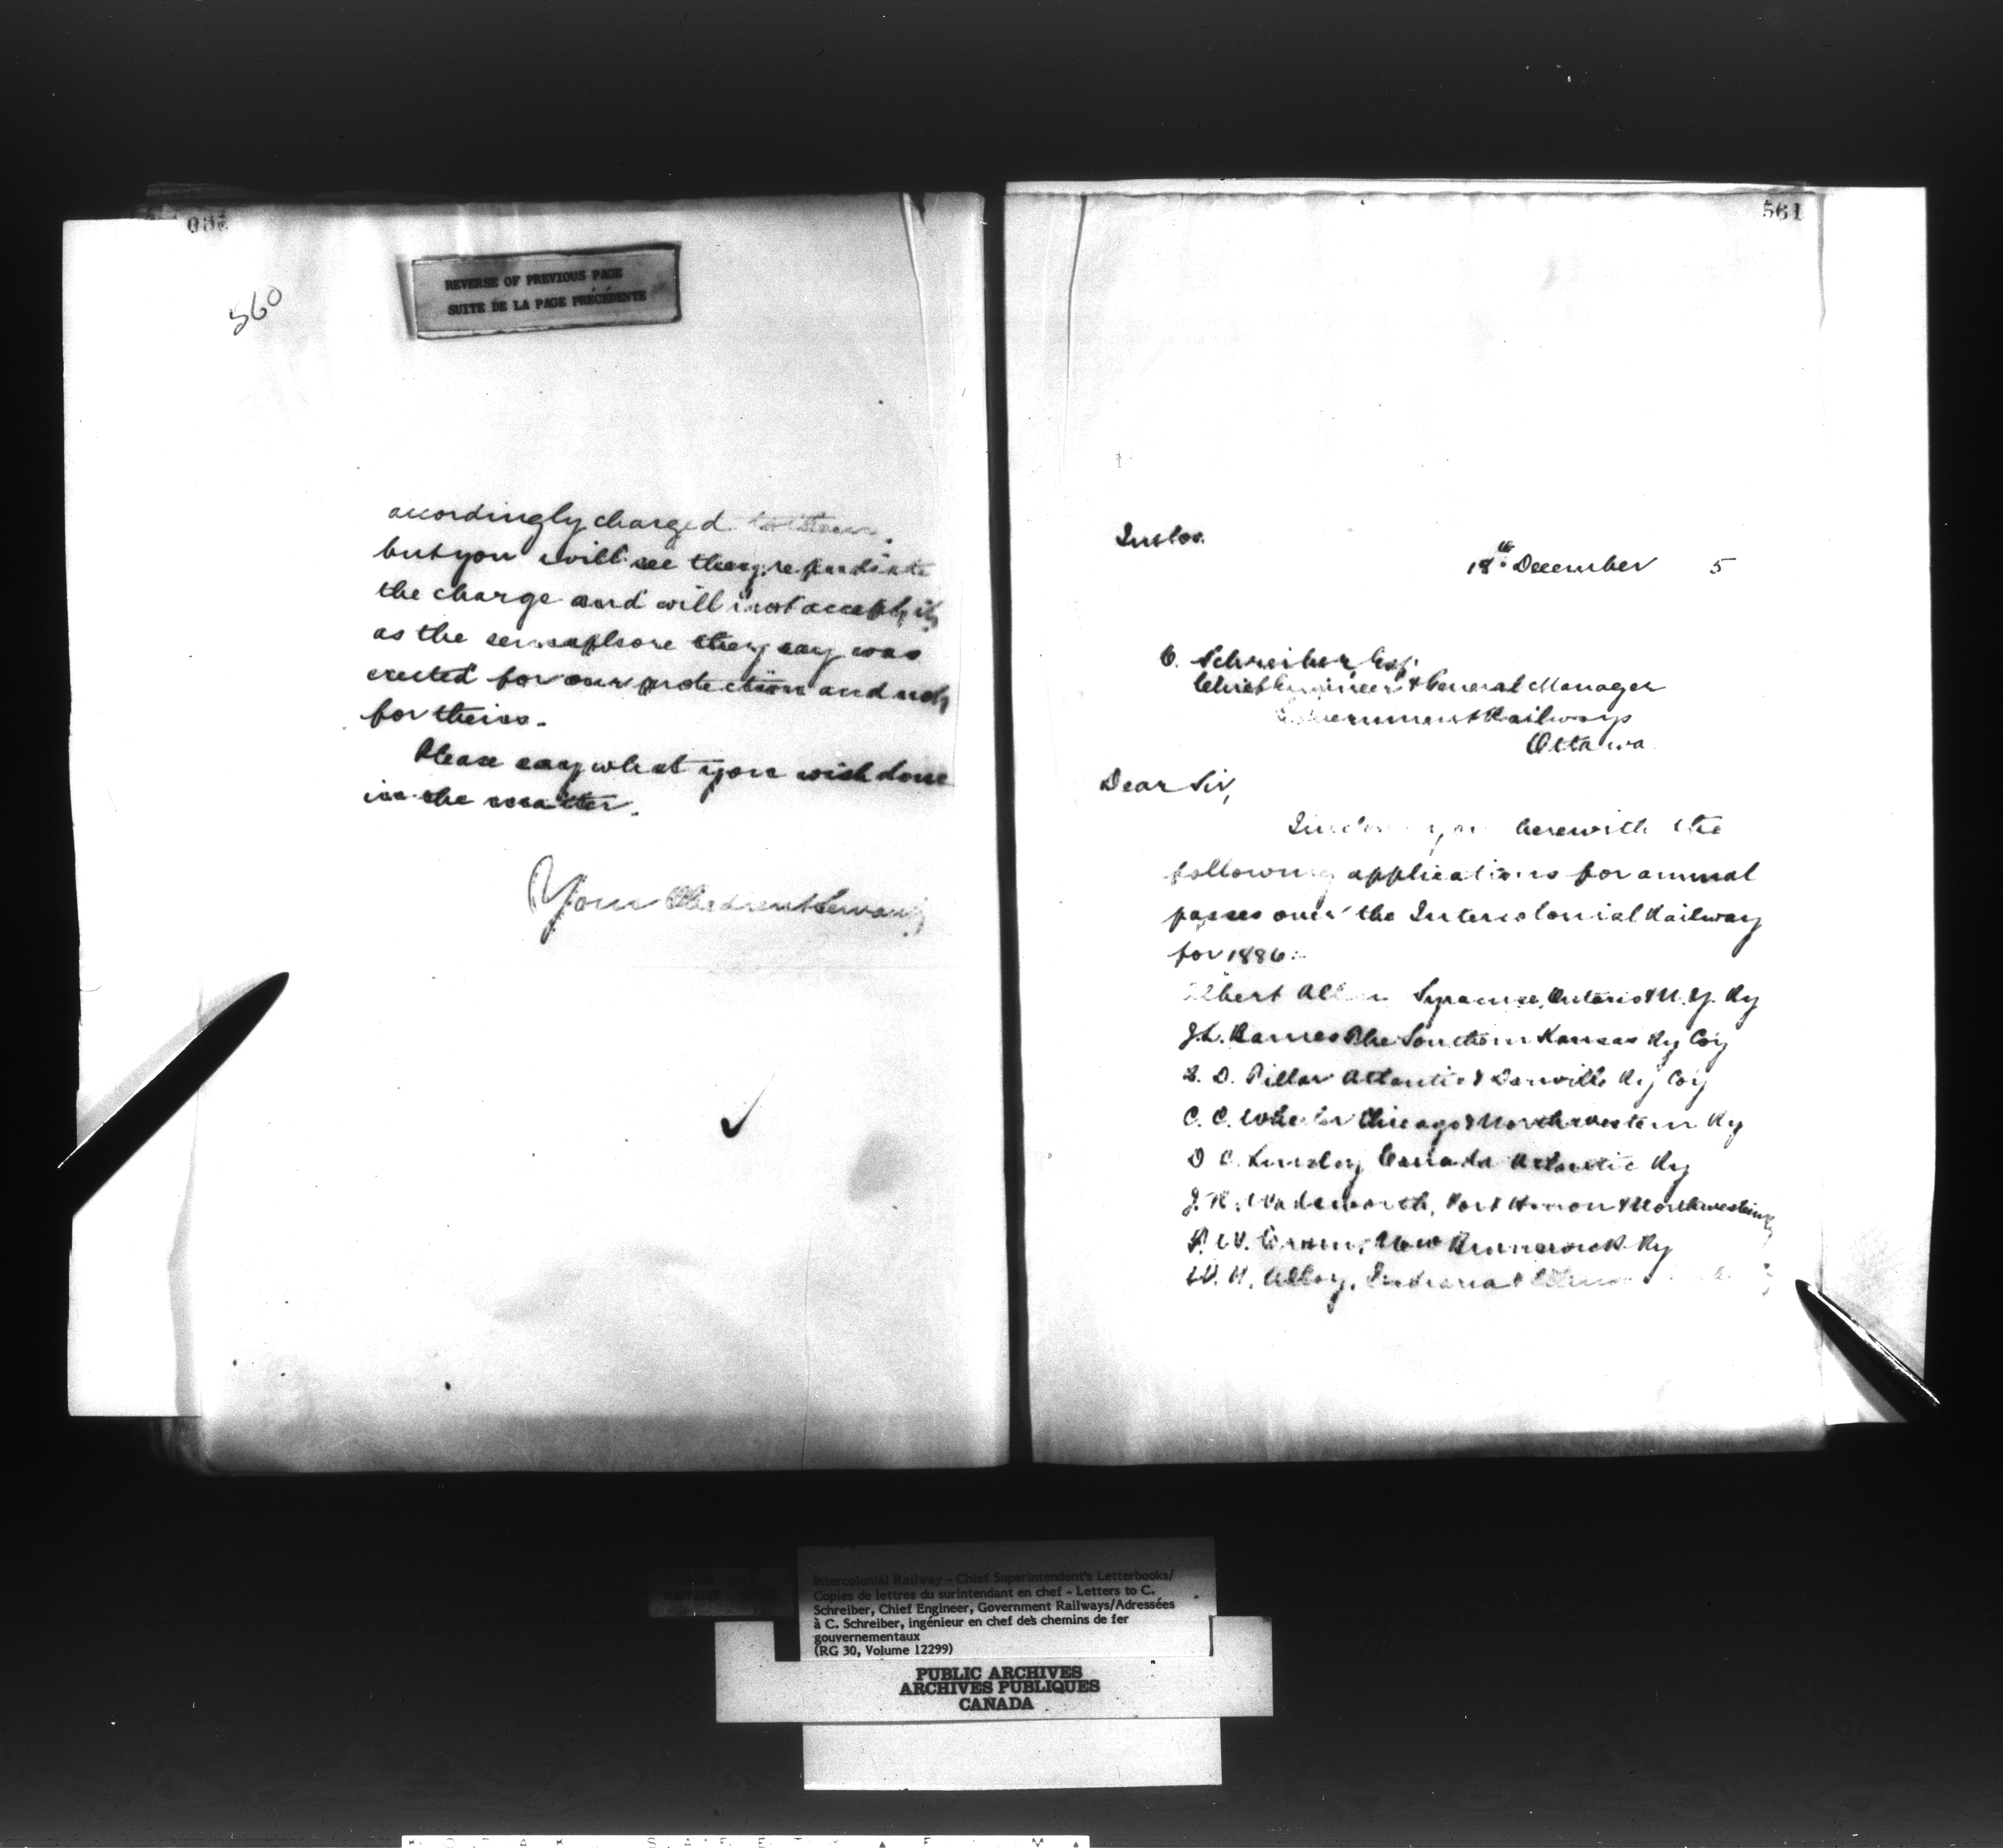 560
REVERSE OF PREVIOUS PAGE
SUITE DE LA PAGE PRÉCÉDENTE
accordingly charged to them.
but you will see they repudiate
the charge and will not accept it
as the semaphore they say was
erected for our protection and not
for theirs.
Please say what you wish done
in the matter.
Your Obedient Servant
561
Inclos.
18th December 5
C. Schreiber Esq.
Chief Engineer & General Manager
Government Railways
Ottawa
Dear Sir,
you herewith the
following applications for annual
passes over the Intercolonial Railway
for 1886:
Albert Allen Syracuse, Ontario & N.Y. Ry
J.L. Barnes The Southern Kansas Ry Coy
Pillar Atlantic & Danville Ry Coy
C. C. Wheeler Chicago & Northwestern Ry
D C. Linsley Canada Atlantic Ry
J. R. Wadsworth, Port Huron & Northwestern Ry
New Brunswick Ry
W. H. Indiana &
Intercolonial Railway - Chief Superintendent's Letterbooks/
Copies de lettres du surintendant en chef - Letters to C.
Schreiber, Chief Engineer, Government Railways/Adressées
à C. Schreiber, ingénieur en chef des chemins de fer
gouvernementaux
(RG 30, Volume 12299)
PUBLIC ARCHIVES
ARCHIVES PUBLIQUES
CANADA